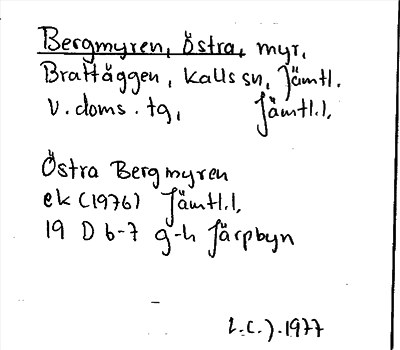 Bergmyren, Östra, myr.
Brattäggen, Kalls sn, Jämtl.
v. doms. tg, Jämtl.l.
Östra Bergmyren
ek (1976) Jämtl.l.
19 D b-7 g-h Järpbyn
1977